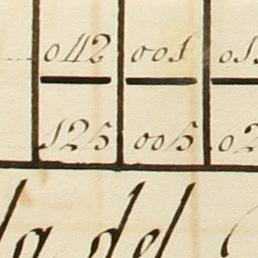 042 001
125 005 02
la del